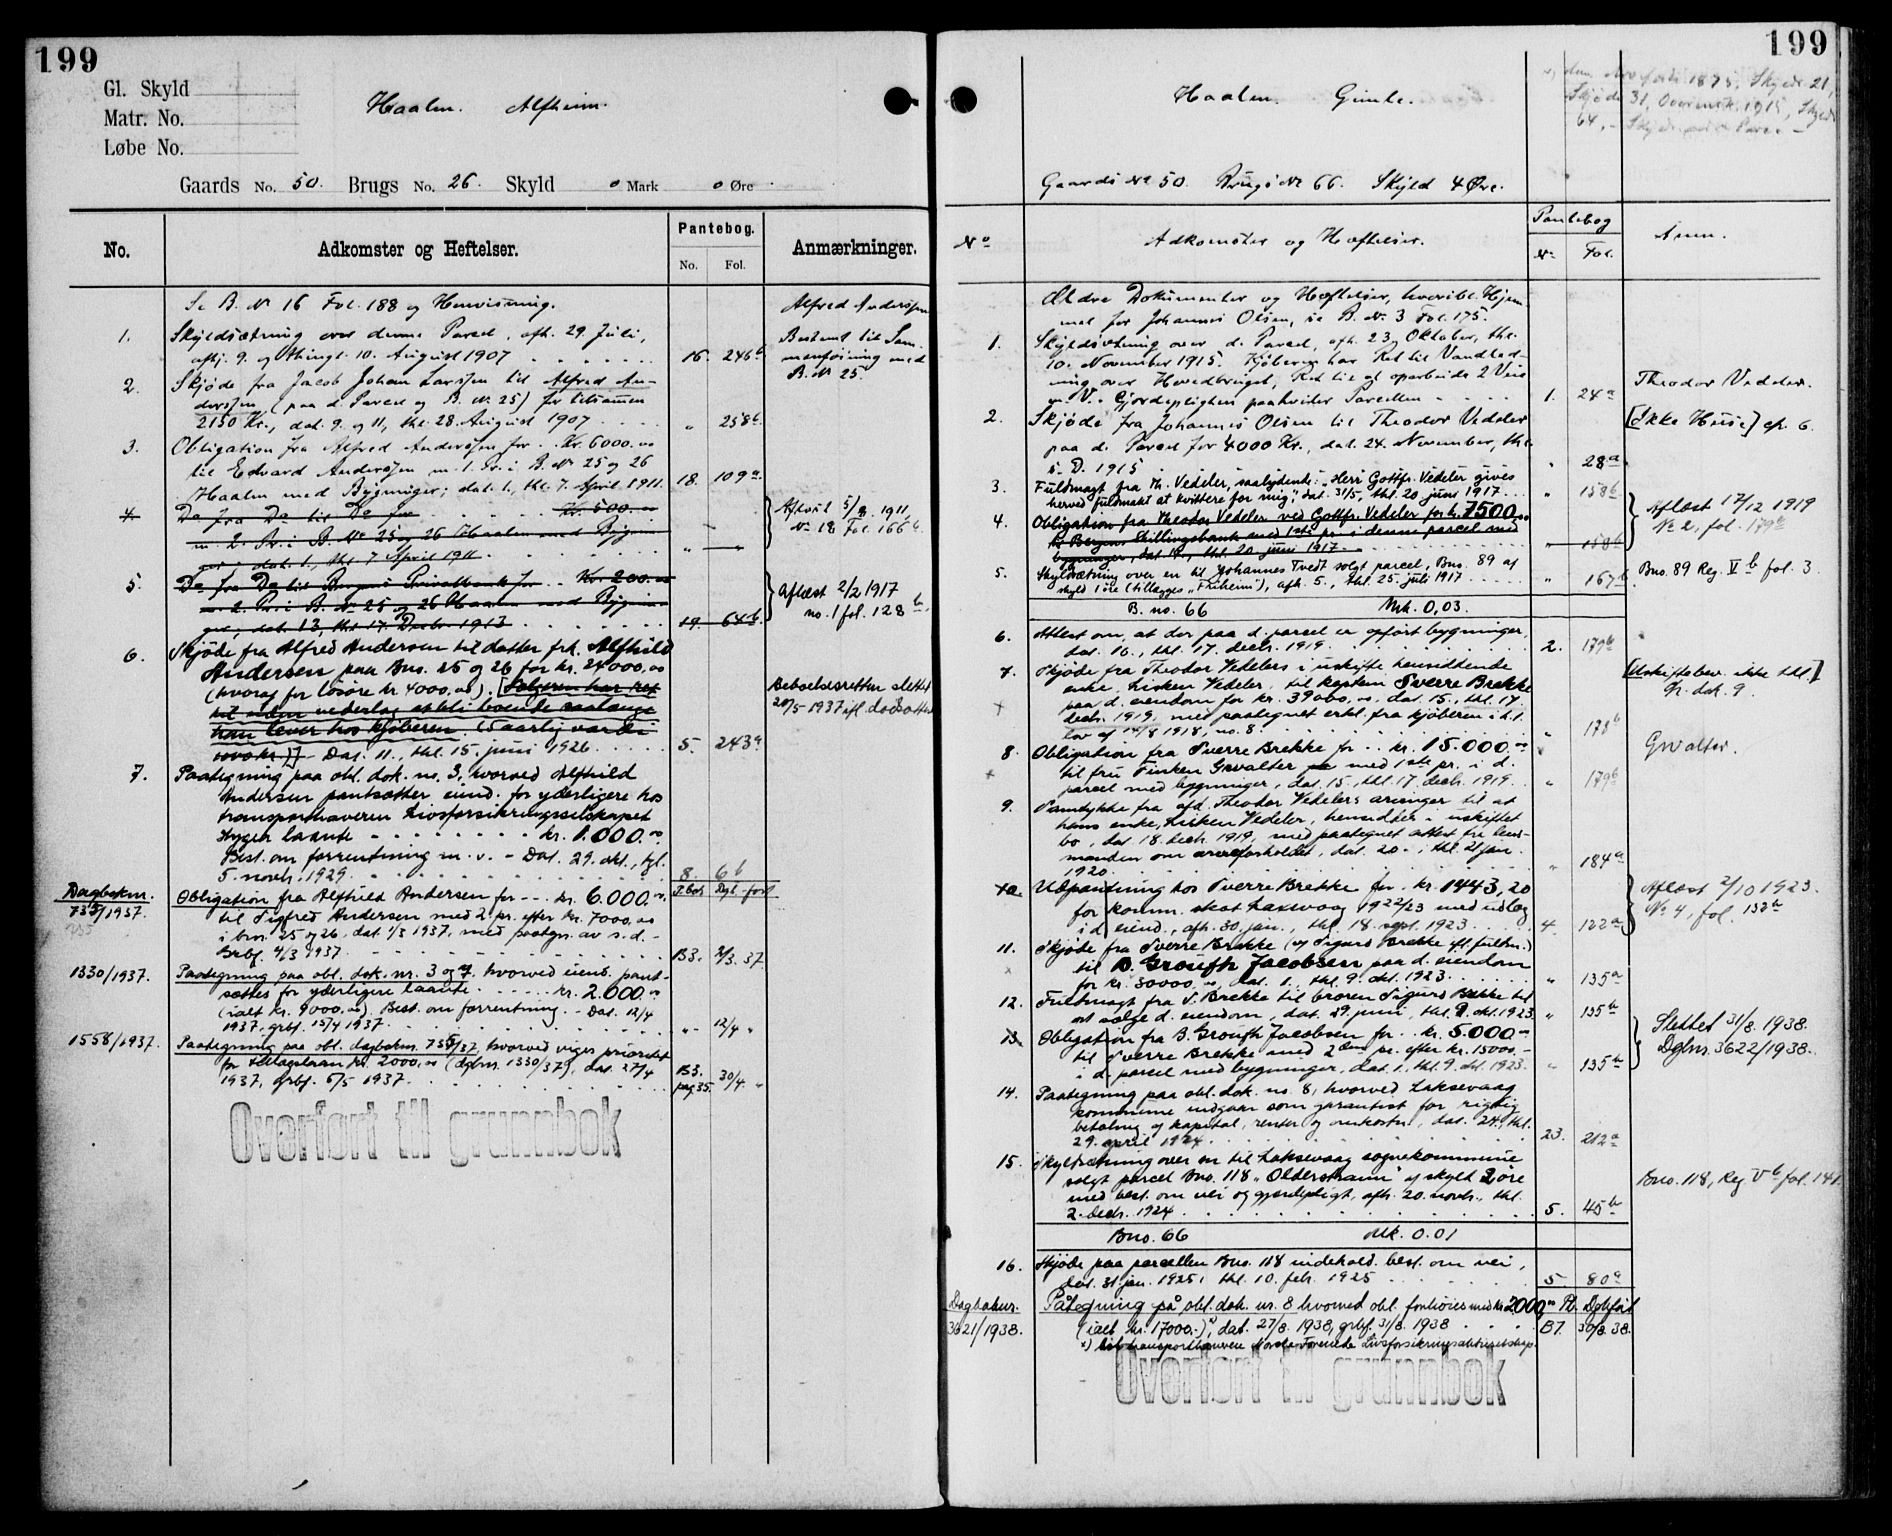 199
Gl. Skyld
Matr. No.
Løbe No.
Haalen. Alfheim.
Gaards No. 50. Brugs No. 26. Skyld 0 Mark 0 Øre
No. Adkomster og Heftelser. Pantebog. No. Fol. Anmærkninger.
Se B. No 16 Fol. 188 og Henvisning. Alfred Andersen
1. Skyldsætning over denne Parcel, afh. 29 Juli,
afhj. 9. og thingl. 10. August 1907 16. 246b
Bestemt til Sam-
menføining med
B. No 25.
2. Skjøde fra Jacob Johan Larssen til Alfred An-
derssen (paa d. Parcel og B. No 25) for tilsammen
2150 Kr., dat. 9. og 11, thl. 28. August 1907 " 258b
3. Obligation fra Alfred Anderssen for .. Kr. 6000.00
til Edvard Anderssen m. 1. Pr. i B. No 25 og 26
Haalen med Bygninger; dat. 1., thl. 7. April 1911. 18. 109a
4. Do fra Do til Do for Kr. 500.00
m. 2. Pr. i B. No 25 og 26 Haalen med Bygnin-
ger; dat. 1., thl. 7 April 1911 " "
Aflyst 5/8. 1911,
No 18 Fol. 166
5. Do fra Do til Bergens Privatbank for .. Kr. 200.00
m. 2. Pr. i B. No 25 og 26 Haalen med Bygnin-
ger; dat. 13, thl. 17. Decbr 1913 19. 64b.
Aflæst 2/2 1917
no. 1 fol. 128 b.
6. Skjøde fra Alfred Andersen til datter frk. Alfhild
Andersen paa Bno. 25 og 26 for kr. 24000.00
(hvoraf for løsøre kr 4000.00). [Sælgeren har ret
til uden vederlag at bli boende saalænge
han lever hos kjøberen. (5 aarlig værdi
1000 kr.)] - Dat. 11., thl. 15. juni 1926 5. 243a
Beboelsesretten slettet
20/5 1937 ifl. dødsattest
7. Paategning paa obl. dok. no. 3, hvorved Alfhild
Andersen pantsætter eiend. for yderligere hos
transporthaveren Livsforsikringsselskapet
Hygea laante kr. 1.000.00
Best. om forrentning m. v. - Dat. 29. okt., tgl.
5. novbr. 1929 8. 6b
Dagboknr.
735/1937.
P.bok Dgl.-ført
Obligation fra Alfhild Andersen for --- kr. 6.000.00,
til Sigfred Andersen med 2 pr. efter kr. 7000.00
i bno. 25 og 26, dat. 1/3 1937, med paategn. av s.d. -
Grbf. 4/3 1937 B3. 2/3. 37.
1330/1937. Paategning paa obl. dok. nr. 3 og 7. hvorved eiend. pant-
sættes for yderligere laante kr. 2.000.00
(ialt kr. 9000.00). Best. om forrentning. - Dat. 12/4
1937, grbf. 15/4 1937 " - 12/4 "
1558/1937. Paategning paa obl. dagboknr. 735/37, hvorved viges prioritet
for tillægslaan kr. 2000.00 (dgbnr. 1330/37), dat. 27/4
1937, grbf. 5/5 1937 B3. pag 35. 30/4. "
Overført til grunnbok
199
Haalen. Gimle.
Gaards No 50. Brugs No 66. Skyld 4 Øre.
No Adkomster og Hæftelser. Pantebog No Fol. Anm.
Ældre Dokumenter og Hæftelser, hvoribl. Hjem-
mel for Johannes Olsen, se B. No 3 Fol. 175.
1. Skyldsætning over d. Parcel, afh. 23. Oktober, thl.
10. November 1915. Kjøberen har Ret til Vandled-
ning over Hovedbruget, Ret til at oparbeide 2 Veie
m. V. - Gjerdepligten paahviler Parcellen 1. 24a
Theodor Vedeler.
2. Skjøde fra Johannes Olsen til Theodor Vedeler
paa d. Parcel for 4000 Kr., dat. 24. November, thl.
s. D. 1915 " 28a
[Ikke Huse] cf. 6.
3. Fuldmagt fra Th. Vedeler, saalydende: "Herr Gottfr. Vedeler gives
herved fuldmakt at kvittere for mig", dat. 31/5, thl. 20 juni 1917 " 158b
4. Obligation fra Theodor Vedeler ved Gottfr. Vedeler for kr. 7500.00
til Bergens Skillingsbank med 1ste pr. i denne parcel med
bygninger, dat. 14., thl. 20 juni 1917 " 158b
Aflæst 17/12 1919
No 2, fol. 179b
5. Skyldsætning over en til Johannes Tvedt solgt parcel, Bno. 89 af
skyld 1 øre (tillægges "Friheim"), afh. 5., thl. 25. juli 1917 " 167b
Bno. 89 Reg. V b fol. 3.
B. no. 66 Mrk. 0,03.
6. Attest om, at der paa d. parcel er opført bygninger,
dat. 16., thl. 17. decbr. 1919 2. 179b
7. Skjøde fra Theodor Vedelers i uskifte hensiddende
enke, Lisken Vedeler, til kaptein Sverre Brekke
paa d. eiendom for kr. 39000.00, dat. 15., thl. 17.
decbr. 1919, med paategnet erkl. fra kjøberen i h. t.
lov af 14/8 1918, no. 8. " 178b
[Uskiftebev. ikke thl.]
Cfr. dok. 9.
8. Obligation fra Sverre Brekke for .. kr. 15.000.00
til fru Finken Grevalter med 1ste pr. i d.
parcel med bygninger, dat. 15., thl. 17. decbr. 1919. " 179b
9. Samtykke fra afd. Theodor Vedelers arvinger til at
hans enke, Lisken Vedeler, hensidder i uskiftet
bo, dat. 18. decbr. 1919, med paategnet attest fra lens-
manden om arveforholdet, dat. 20., thl. 21 jan.
1920 " 184a
10. Udpantning hos Sverre Brekke for .. kr. 1443,20
for komm. skat Laksevaag 1922/23 med udlæg
i d. eiend., afh. 30. jan., thl. 18. sept. 1923 4. 122a
Aflæst 2/10 1923.
No 4, fol. 132b
11. Skjøde fra Sverre Brekke (v/ Sigurd Brekke ifl. fuldm.)
til B. Groufh Jacobsen paa d. eiendom
for kr. 30000.00, dat. 1., thl. 9. okt. 1923 " 135a
12. Fuldmagt fra S. Brekke til broren Sigurd Brekke til
at sælge d. eiendom, dat. 29. juni, thl. 9. okt. 1923 " 135b
13. Obligation fra B. Groufh Jacobsen for .. kr. 5.000.00
til Sverre Brekke med 2den pr. efter kr. 15000.-
i d. parcel med bygninger, dat. 1., thl. 9. okt. 1923. " 135b
Slettet 31/8. 1938.
Dglnr. 3622/1938.
14. Paategning paa obl. dok. no. 8, hvorved Laksevaag
kommune indgaar som garantist for rigtig
betaling af kapital, renter og omkostn., dat. 24., thl.
29. april 1924 23. 212a
15. Skyldsætning over en til Laksevaag sognekommune
solgt parcel Bno. 118 "Olderstrann" af skyld 2 øre
med best. om vei og gjerdepligt, afh. 20. novbr., thl.
2. decbr. 1924 5. 45b
Bno. 118, Reg. V b fol. 141.
Bno. 66 Mk. 0.01
16. Skjøde paa parcellen Bno. 118 indehold. best. om vei,
dat. 31. jan. 1925, thl. 10. feb. 1925 5. 80a
Dagboknr.
3621/1938.
Påtegning på obl. dok. nr. 8 hvorved obl. forhøies med kr 2000.00 Pb. Dgbført
(ialt kr. 17000.-)x), dat. 27/8. 1938, grbf. 31/8. 1938 B7. 30/8. 38.
x) til transporthaveren Norske Forenede Livsforsikringsaktieselskap.
Overført til grunnbok